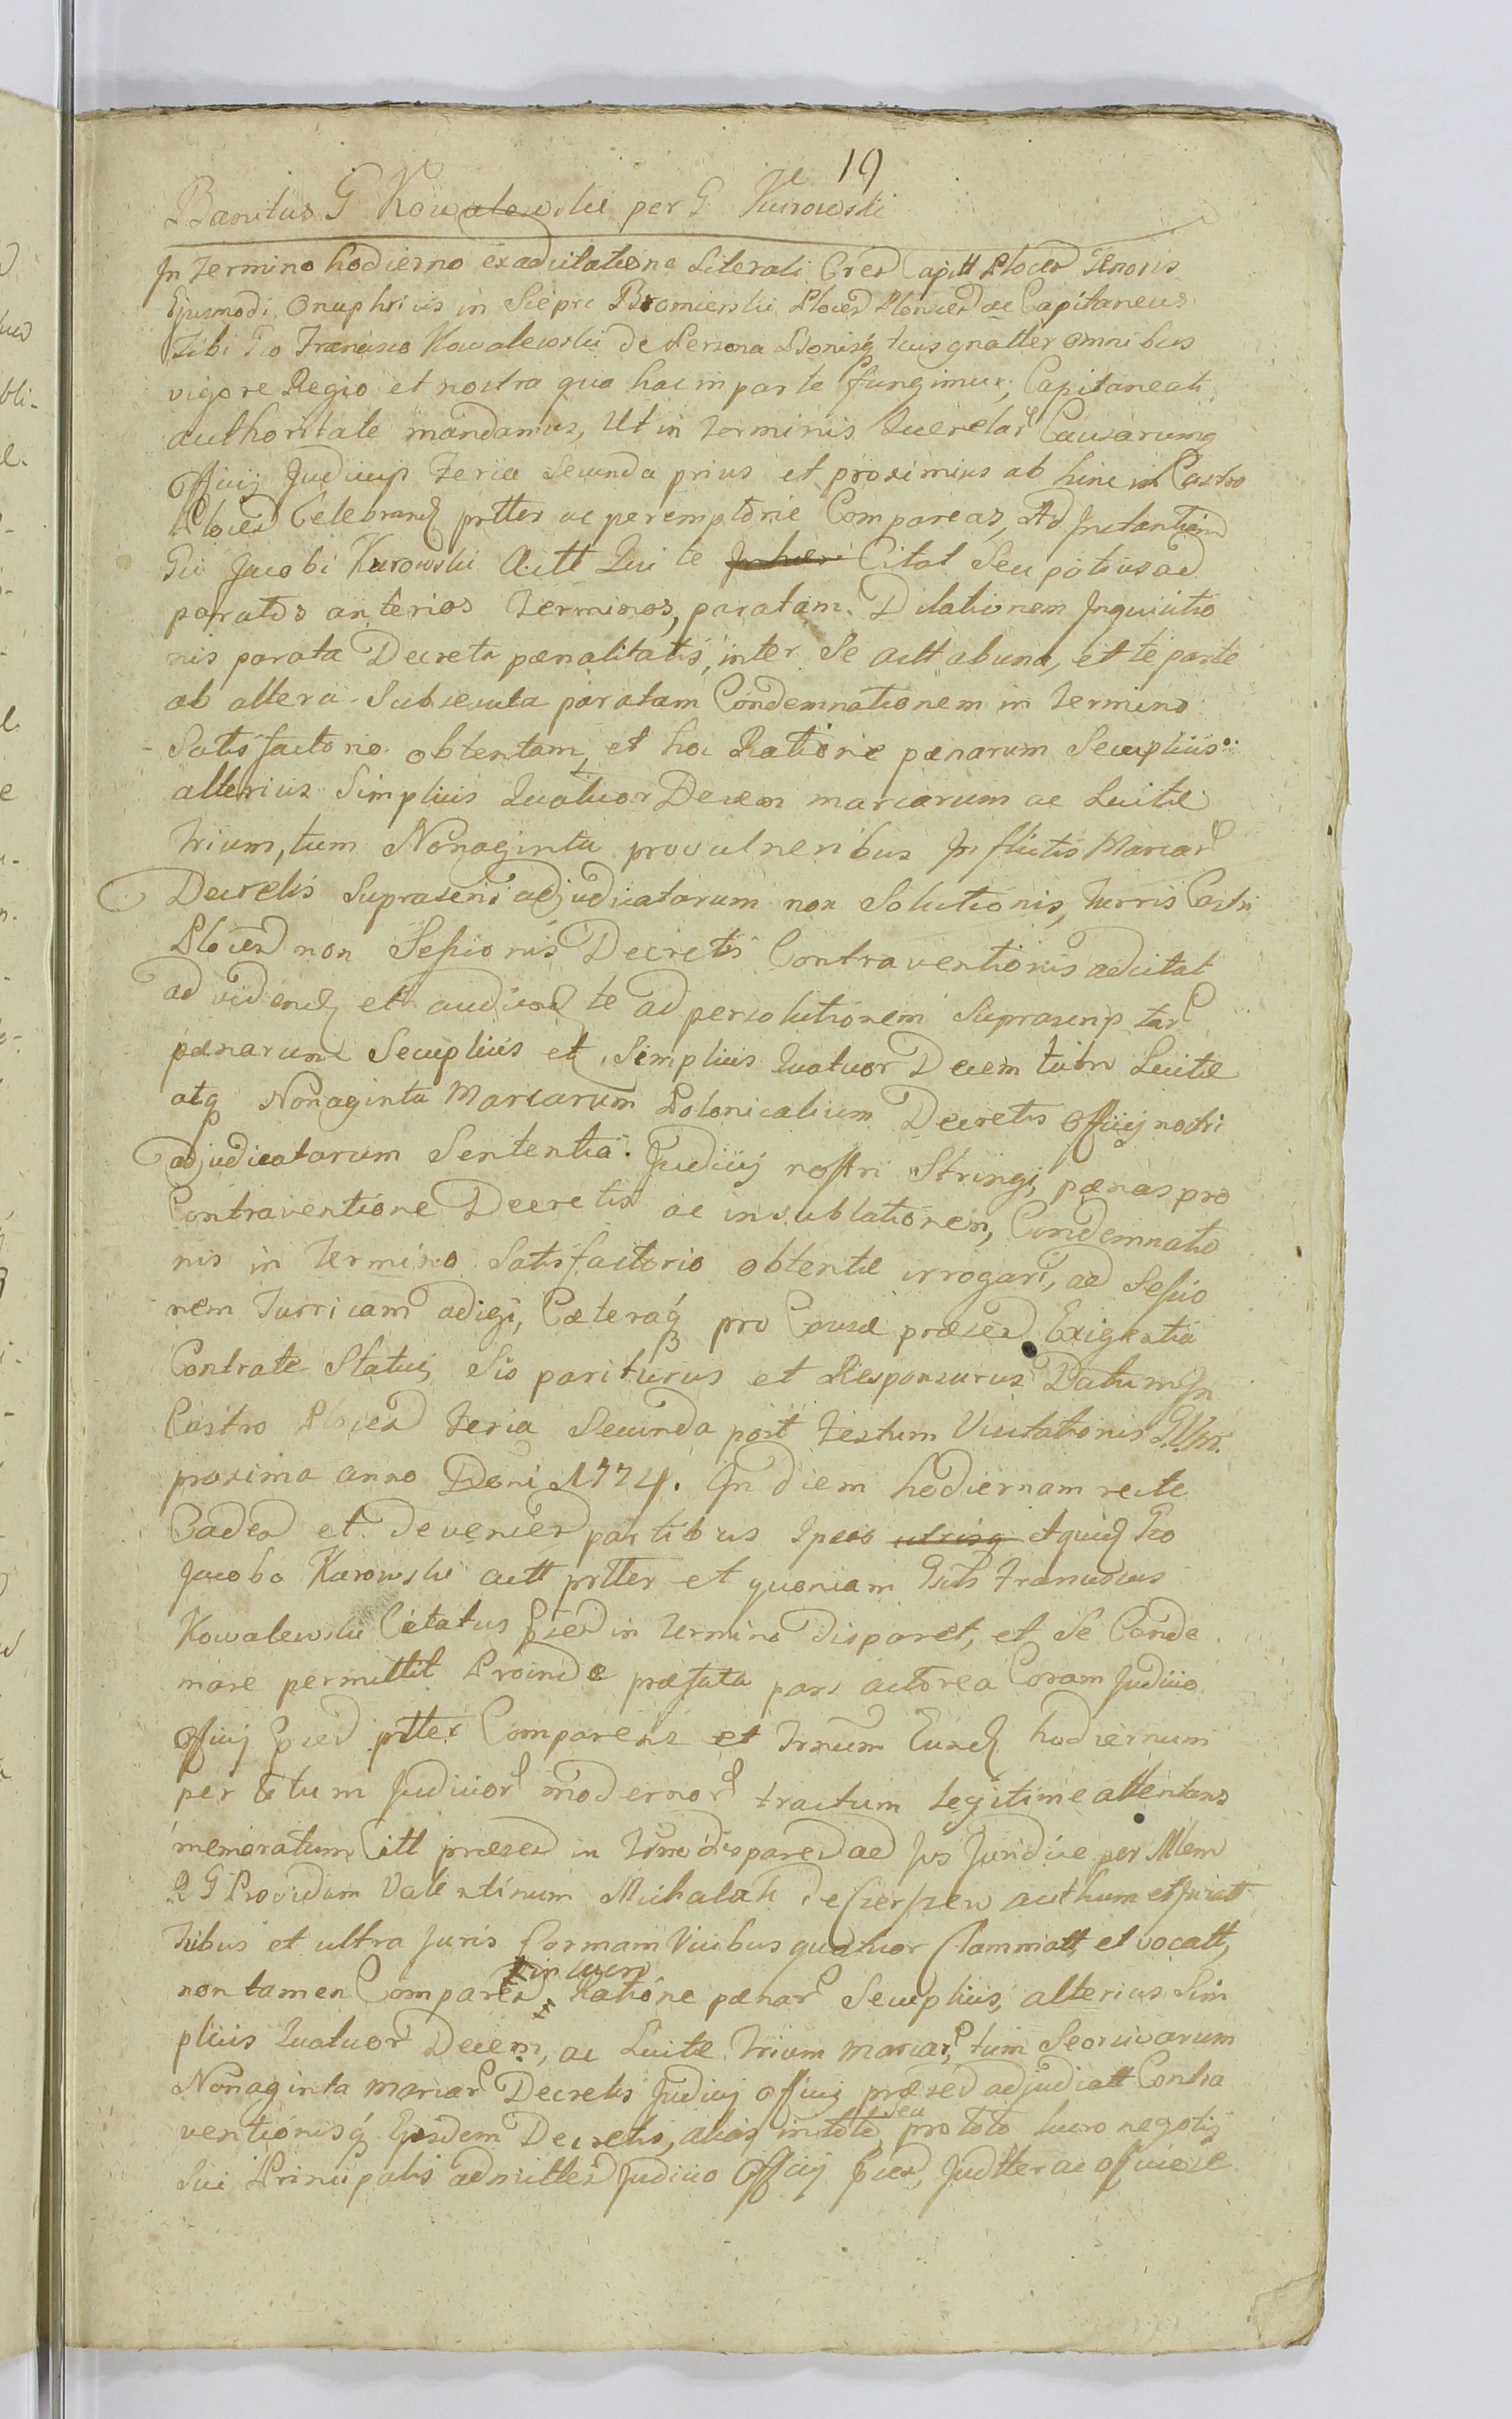 19
Banitus G Kowalewski per G Kurowski
In Termino hodierno ex adcitatione Literali Cres Capitt Plocen Tenoris
Ejusmodi Onuphrius in Siepre Bromierski Plocen Plonscen ac Capitaneus
Tibi Gso Francisco Kowalewski de Persona Bonisq tuis gnalter omnibus
vigore Regio et nostra qua hac in parte fungimur, Capitaneali
authoritate mandamus, Ut in Terminis Querelar Causarumq
Officij Judicijs Feria Secunda prius et proximius ab hinc in Castro
Plocen Celebrand prtter ac peremptorie Compareas, Ad Instantiam
Gsi Jacobi Kurowski Actt Qui te Citat Seu potius ad
paratos anterios Terminos, paratam Dilationem Inquisitio
nis parata Decreta pænalitatis, inter Se actt ab una, et te parte
ab altera Subsecuta paratam Condemnationem in Termino
Satisfactorio obtentam, et hoc Ratione pænarum Secuplicis
alterius Simplicis Quatuor Decem marcarum ac Luitæ
Trium, tum Nonaginta pro vulneribus Inflictis Marcar
Decretis Suprascris adjudicatarum non Solutionis, Turris Castri
Plocen non Sessionis Decretis Contraventionis adcitat
ad vidend et audiend te ad persolutionem Suprascriptar
pænarum Secuplicis et Simplicis Quatuor Decem tum Luitæ
atq Nonaginta Marcarum Polonicalium Decretis Officij nostri
adjudicatarum Sententia Judicij nostri Stringi, pænas pro
Contraventione Decretis ac insublationem, Condemnatio
nis in Termino Satisfactorio obtentæ irrogari, ad Sessio
nem Turricam adigi, Cæteraq pro Causæ præsen Exigentia
Contra te Statui, Sis pariturus et Responsurus Datum In
Castro Plocen Feria Secunda post Festum Visitationis
proxima anno Doni 1774. In diem hodiernam recte
Caden et devenien partibus Ipsis utrisq Gso
Jacobo Kurowski actt prtter et quoniam Gsus Franciscus
Kowalewski Citatus psed in Termino disparet, et Se Conde
mnare permittit Proinde præfata pars actorea Coram Judicio
Officij psed prtter Comparens et Trnum Eund hodiernum
per totum Judicior modernor tractum legitime attentans
memoratum Citt præsen in Trno disparen ad Jus Juridice per Mlem
R G Providum Valentinum Michalak de authum et Juratt
Tribus et ultra Juris formam Vicibus quatuor Clammatt, et vocatt,
in lucro
non tamen Comparen Ratione pænar Secuplicis, alterius Sim
plicis Quatuor Decem, ac Luitæ Trium marcar, tum Seorsivarum
Nonaginta marcar Decretis Judicij Officij præsed adjudicatt Contra
ventionisq Eosdem Decretis, alias in toto, seu pro toto lucro negotij
Sui Principalis admitten Judicio Officij psed, Judtter ac officiose